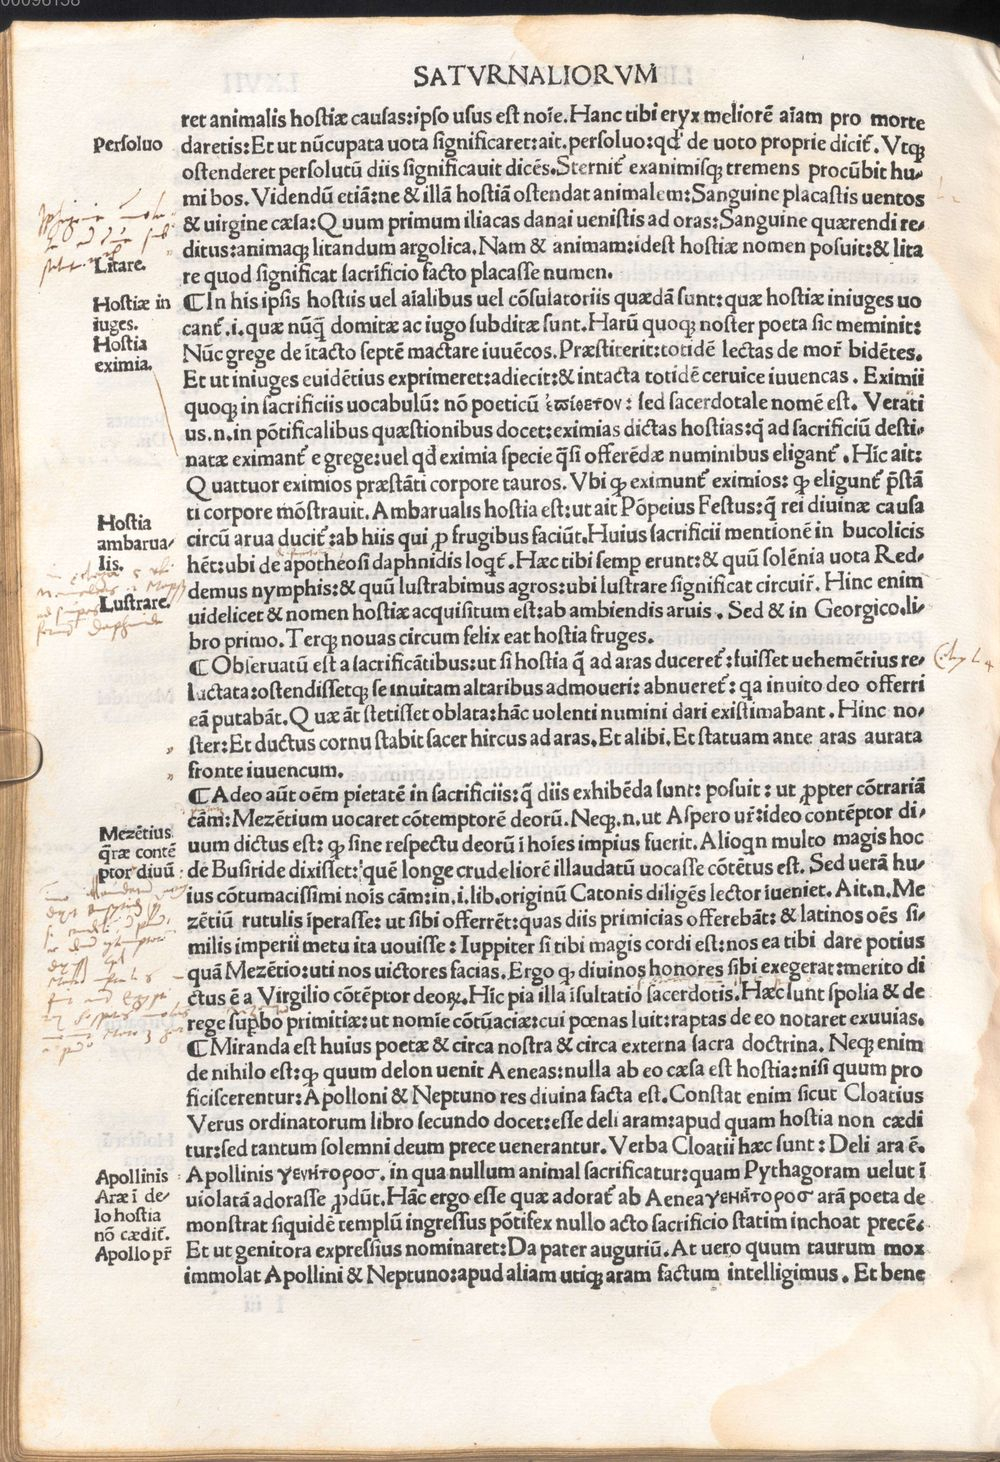 00090158
SATVRNALIORVM
ret animalis hostiæ causas:ipso usus est noĩe.Hanc tibi eryx meliorẽ aĩam pro morte
Persoluo
daretis:Et ut nũcupata uota significaret:ait.persoluo:qd' de uoto proprie dicit̃.Vtqꝫ
ostenderet persolutũ diis significauit dicẽs.Sternit̃ exanimisqꝫ tremens procũbit hu/
mi bos.Videndũ etiã:ne & illã hostiã ostendat animalem:Sanguine placastis uentos
& uirgine cæsa:Quum primum iliacas danai uenistis ad oras:Sanguine quærendi re/
ditus:animaqꝫ litandum argolica.Nam & animam:idest hostiæ nomen posuit:& lita
Litare.
re quod significat sacrificio facto placasse numen.
Hostiæ in
iuges.
Hostia
eximia.
¶In his ipsis hostiis uel aĩalibus uel cõsulatoriis quædã sunt:quæ hostiæ iniuges uo
cant̃.i.quæ nũq̃ domitæ ac iugo subditæ sunt.Harũ quoqꝫ noster poeta sic meminit:
Nũc grege de ĩtacto septẽ mactare iuuẽcos.Præstiterit:totidẽ lectas de mor̃ bidẽtes.
Et ut iniuges euidẽtius exprimeret:adiecit:& intacta totidẽ ceruice iuuencas . Eximii
quoqꝫ in sacrificiis uocabulũ: nõ poeticũ ἐπίθετον: sed sacerdotale nomẽ est. Verati
us.n.in põtificalibus quæstionibus docet:eximias dictas hostias:q̃ ad sacrificiũ desti/
natæ eximant̃ e grege:uel qd̃ eximia specie q̃si offerẽdæ numinibus eligant̃ .Hic ait:
Quattuor eximios præstãti corpore tauros. Vbi qꝫ eximunt̃ eximios: qꝫ eligunt̃ p̃stã
ti corpore mõstrauit.Ambarualis hostia est:ut ait Põpeius Festus:q̃ rei diuinæ causa
Hostia
ambarua/
lis.
circũ arua ducit̃:ab hiis qui ꝓ frugibus faciũt.Huius sacrificii mentionẽ in bucolicis
hẽt:ubi de apotheosi daphnidis loqt̃.Hæc tibi semp erunt:& quũ solẽnia uota Red/
Lustrare.
demus nymphis:& quũ lustrabimus agros:ubi lustrare significat circuir̃. Hinc enim
uidelicet & nomen hostiæ acquisitum est:ab ambiendis aruis . Sed & in Georgico.li/
bro primo.Terqꝫ nouas circum felix eat hostia fruges.
¶Obseruatũ est a sacrificãtibus:ut si hostia q̃ ad aras duceret̃:fuisset uehemẽtius re/
luctata:ostendissetqꝫ se inuitam altaribus admoueri: abnueret̃: qa inuito deo offerri
eã putabãt.Quæ ãt stetisset oblata:hãc uolenti numini dari existimabant . Hinc no/
ster:Et ductus cornu stabit sacer hircus ad aras.Et alibi.Et statuam ante aras aurata
fronte iuuencum.
¶Adeo aũt oẽm pietatẽ in sacrificiis:q̃ diis exhibẽda sunt: posuit : ut ꝓpter cõtrariã
Mezẽtius
q̃ræ contẽ
ptor diuũ
cãm:Mezẽtium uocaret cõtemptorẽ deorũ.Neqꝫ.n.ut Aspero ur̃:ideo contẽptor di/
uum dictus est: qꝫ sine respectu deorũ ĩ hoĩes impius fuerit.Alioqn multo magis hoc
de Busiride dixisset:quẽ longe crudeliorẽ illaudatũ uocasse cõtẽtus est. Sed uerã hu/
ius cõtumacissimi nois cãm:in.i.lib.originũ Catonis diligẽs lector iueniet. Ait.n.Me
zẽtiũ rutulis ĩperasse: ut sibi offerrẽt:quas diis primicias offerebãt: & latinos oẽs si/
milis imperii metu ita uouisse : Iuppiter si tibi magis cordi est:nos ea tibi dare potius
quã Mezẽtio:uti nos uictores facias.Ergo qꝫ diuinos honores sibi exegerat:merito di
ctus ẽ a Virgilio cõtẽptor deoꝝ.Hic pia illa ĩsultatio sacerdotis.Hæc sunt spolia & de
rege supbo primitiæ:ut nomĩe cõtũaciæ:cui pœnas luit:raptas de eo notaret exuuias.
¶Miranda est huius poetæ & circa nostra & circa externa sacra doctrina. Neqꝫ enim
de nihilo est:qꝫ quum delon uenit Aeneas:nulla ab eo cæsa est hostia:nisi quum pro
ficiscerentur:Apolloni & Neptuno res diuina facta est.Constat enim sicut Cloatius
Verus ordinatorum libro secundo docet:esse deli aram:apud quam hostia non cædi
tur:sed tantum solemni deum prece uenerantur. Verba Cloatii hæc sunt : Deli ara ẽ.
Apollinis
Aræ ĩ de/
lo hostia
nõ cædit̃.
Apollo pr̃
Apollinis γενήτοροσ.in qua nullum animal sacrificatur:quam Pythagoram uelut ĩ
uiolatã adorasse ꝓdũt.Hãc ergo esse quæ adorat̃ ab Aenea γενήτοροσ arã poeta de
monstrat siquidẽ templũ ingressus põtifex nullo acto sacrificio statim inchoat precẽ.
Et ut genitora expressius nominaret:Da pater auguriũ.At uero quum taurum mox
immolat Apollini & Neptuno:apud aliam utiqꝫ aram factum intelligimus . Et bene